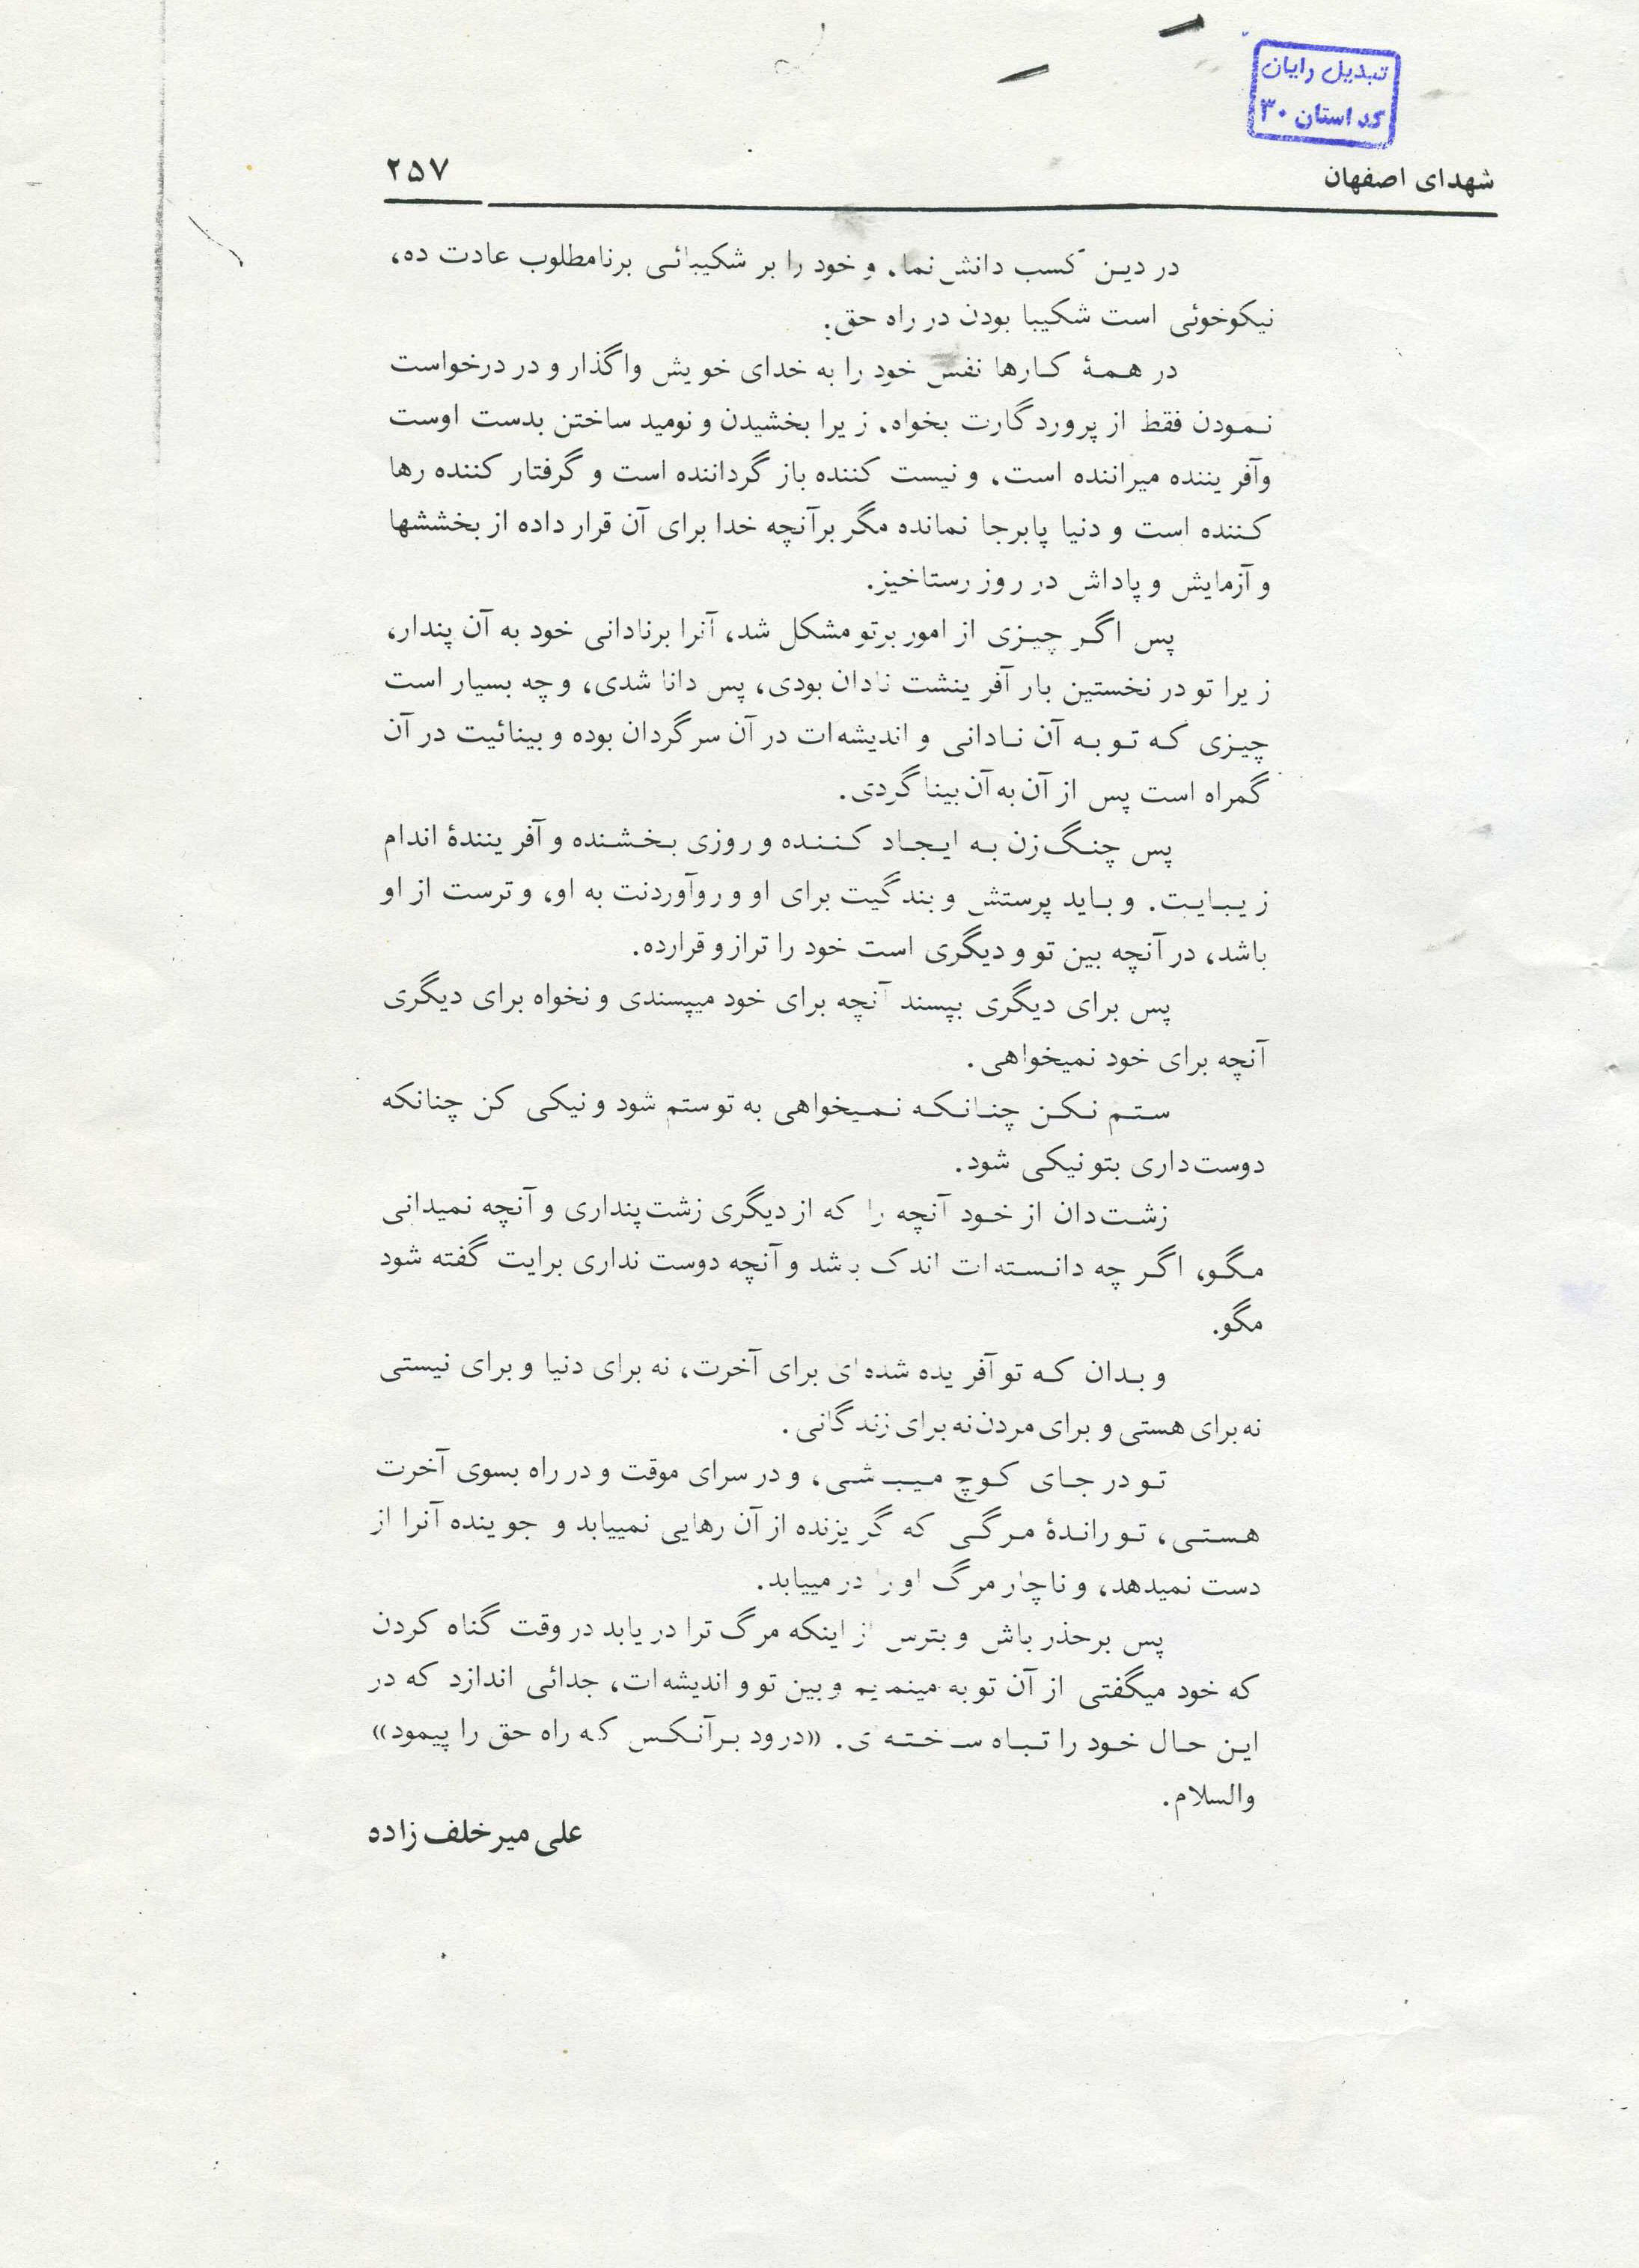 تبدیل رایان
کد استان ۳۰
شهدای اصفهان ۲۵۷
در دین کسب دانش نما، و خود را بر شکیبائی برنامطلوب عادت ده،
نیکوخوئی است شکیبا بودن در راه حق.
در همهٔ کارها نفس خود را به خدای خویش واگذار و در درخواست
نمودن فقط از پروردگارت بخواه، زیرا بخشیدن و نومید ساختن بدست اوست
وآفریننده میراننده است، و نیست کننده باز گرداننده است و گرفتار کننده رها
کننده است و دنیا پابرجا نمانده مگر برآنچه خدا برای آن قرار داده از بخششها
و آزمایش و پاداش در روز رستاخیز.
پس اگر چیزی از امور برتو مشکل شد، آنرا برنادانی خود به آن پندار،
زیرا تو در نخستین بار آفرینشت نادان بودی، پس دانا شدی، و چه بسیار است
چیزی که تو به آن نادانی و اندیشه‌ات در آن سرگردان بوده و بینائیت در آن
گمراه است پس از آن به آن بینا گردی.
پس چنگ زن به ایجاد کننده و روزی بخشنده و آفرینندهٔ اندام
زیبایت. و باید پرستش و بندگیت برای او و روآوردنت به او، و ترست از او
باشد، در آنچه بین تو و دیگری است خود را ترازو قرارده.
پس برای دیگری بپسند آنچه برای خود میپسندی و نخواه برای دیگری
آنچه برای خود نمیخواهی.
ستم نکن چنانکه نمیخواهی به تو ستم شود و نیکی کن چنانکه
دوست داری بتو نیکی شود.
زشت دان از خود آنچه را که از دیگری زشت پنداری و آنچه نمیدانی
مگو، اگر چه دانسته‌ات اندک باشد و آنچه دوست نداری برایت گفته شود
مگو.
و بدان که تو آفریده شده‌ای برای آخرت، نه برای دنیا و برای نیستی
نه برای هستی و برای مردن نه برای زندگانی.
تو در جای کوچ میباشی، و در سرای موقت و در راه بسوی آخرت
هستی، تو راندهٔ مرگی که گریزنده از آن رهایی نمییابد و جوینده آنرا از
دست نمیدهد، و ناچار مرگ او را در مییابد.
پس برحذر باش و بترس از اینکه مرگ ترا دریابد در وقت گناه کردن
که خود میگفتی از آن توبه مینمایم و بین تو و اندیشه‌ات، جدائی اندازد که در
این حال خود را تباه ساخته‌ای. «درود برآنکس که راه حق را پیمود»
والسلام.
علی میرخلف زاده